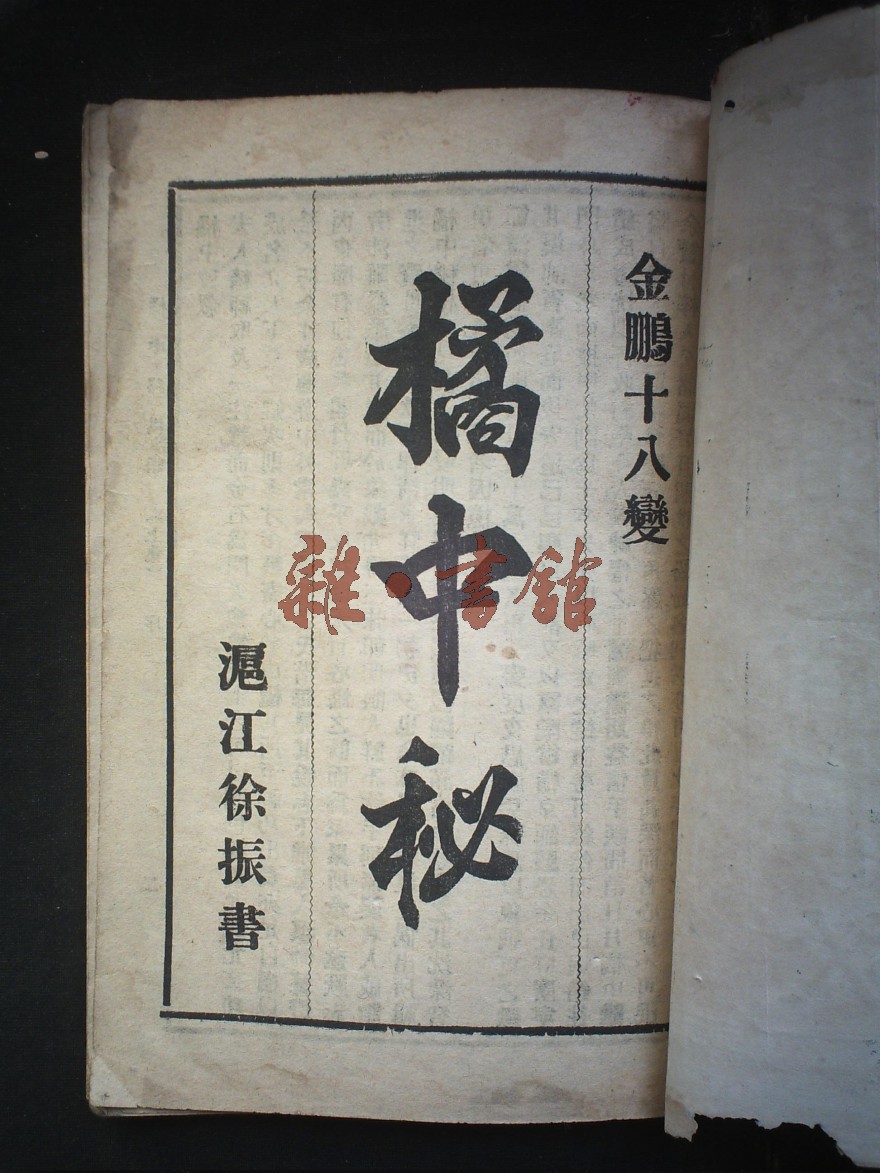 金鵬十八變
橘中秘
滬江徐振書
雜·書館